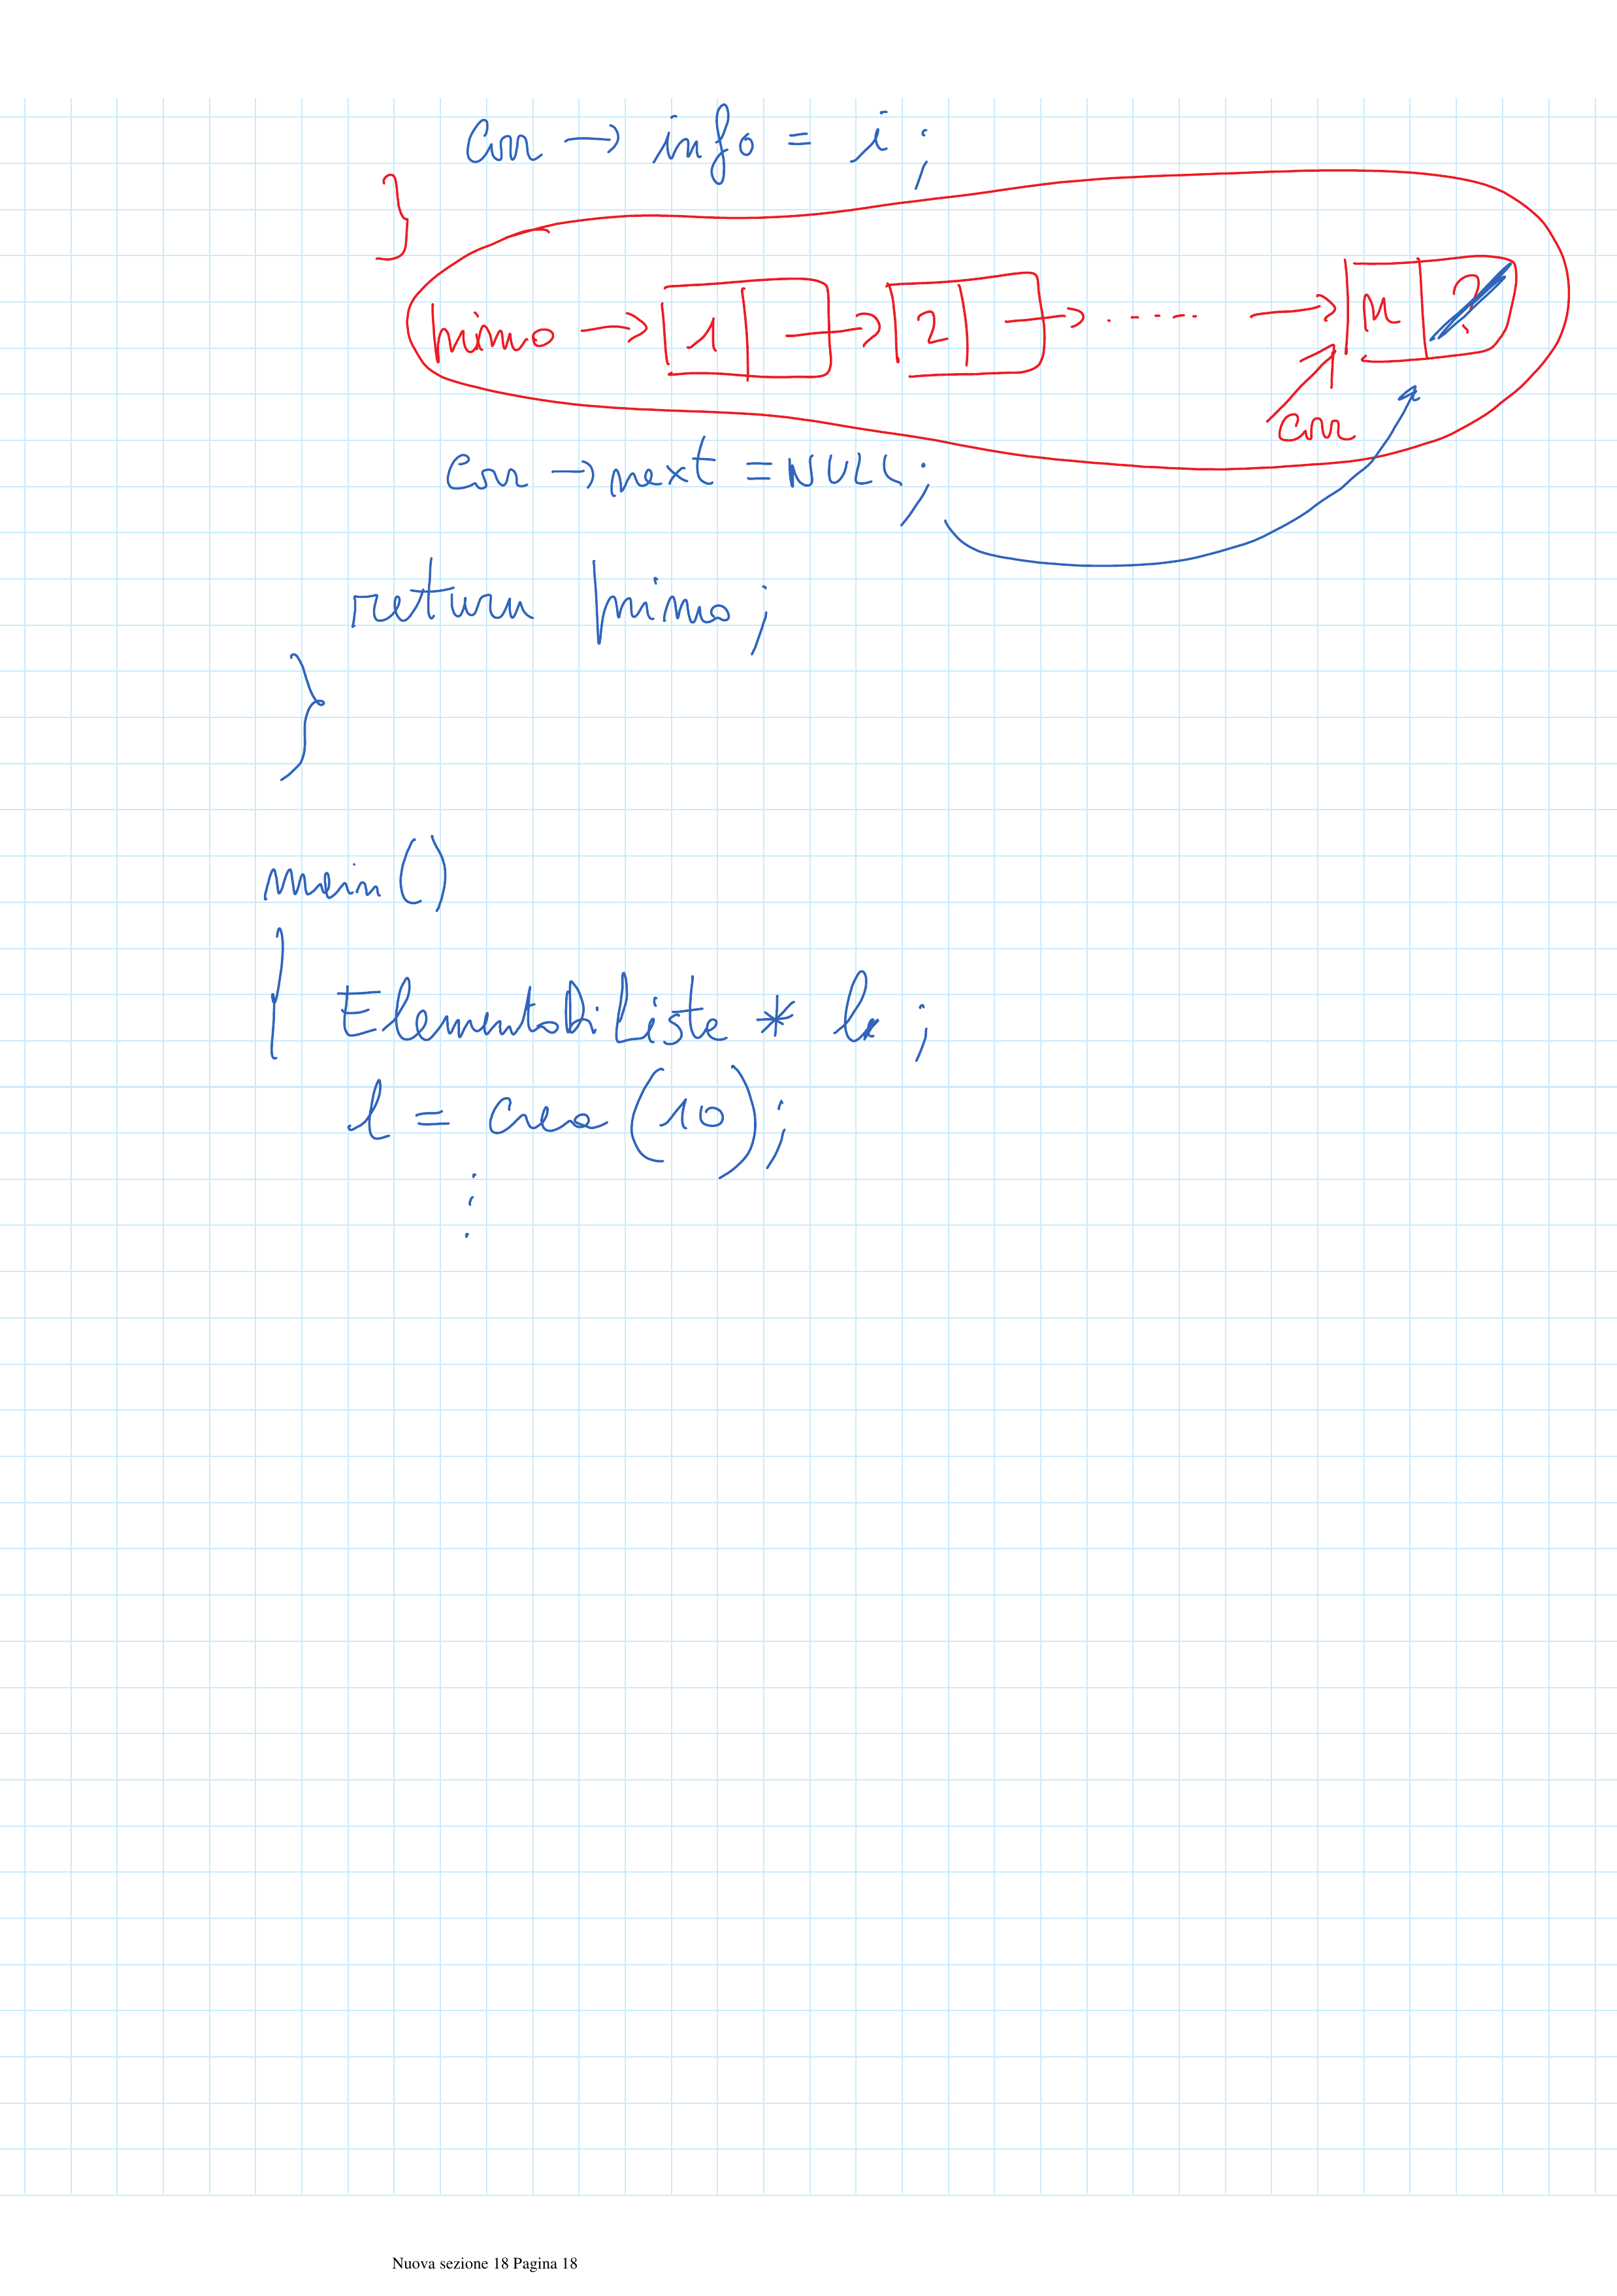 corr → info = i ;
}
primo → 1 → 2 → ..... → n ?
corr
corr → next = NULL ;
return primo ;
}
main ()
{ ElementoDiLista * l ;
l = crea (10) ;
⋮
Nuova sezione 18 Pagina 18